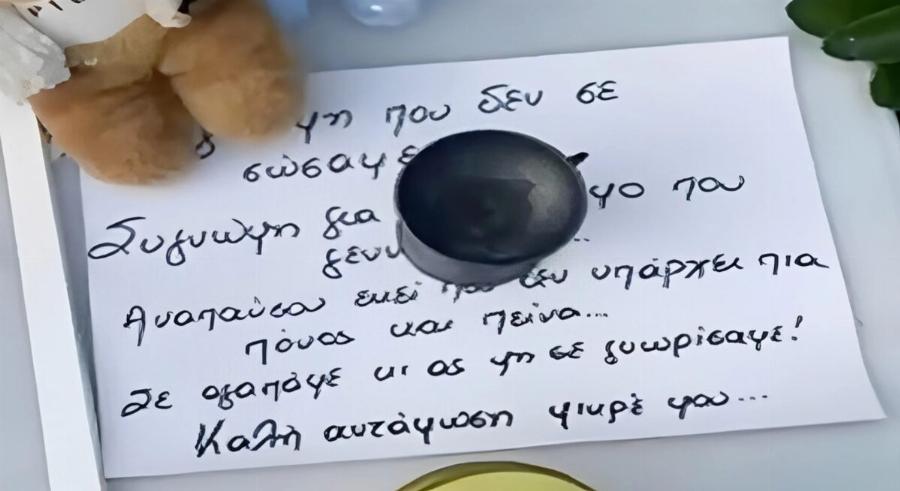 που δεν σε
σώσαμε
Συγνώμη για που
Αναπαύσου εκεί που δεν υπάρχει πια
πόνος και πείνα...
Σε αγαπάμε κι ας μη σε γνωρίσαμε!
Καλή αντάμωση μικρέ μου...